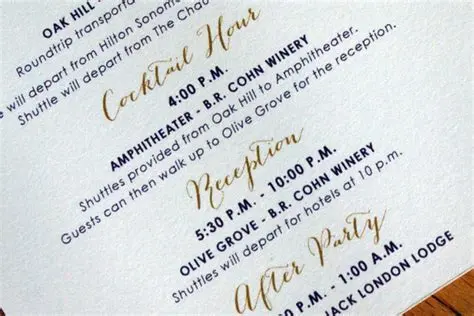 OAK HILL
Roundtrip transportat
will depart from Hilton Sonoma
Shuttle will depart from The Chau
Cocktail Hour
4:00 P.M.
AMPHITHEATER - B.R. COHN WINERY
Shuttles provided from Oak Hill to Amphitheater.
Guests can then walk up to Olive Grove for the reception.
Reception
5:30 P.M. - 10:00 P.M.
OLIVE GROVE - B.R. COHN WINERY
Shuttles will depart for hotels at 10 p.m.
After Party
P.M. - 1:00 A.M.
JACK LONDON LODGE